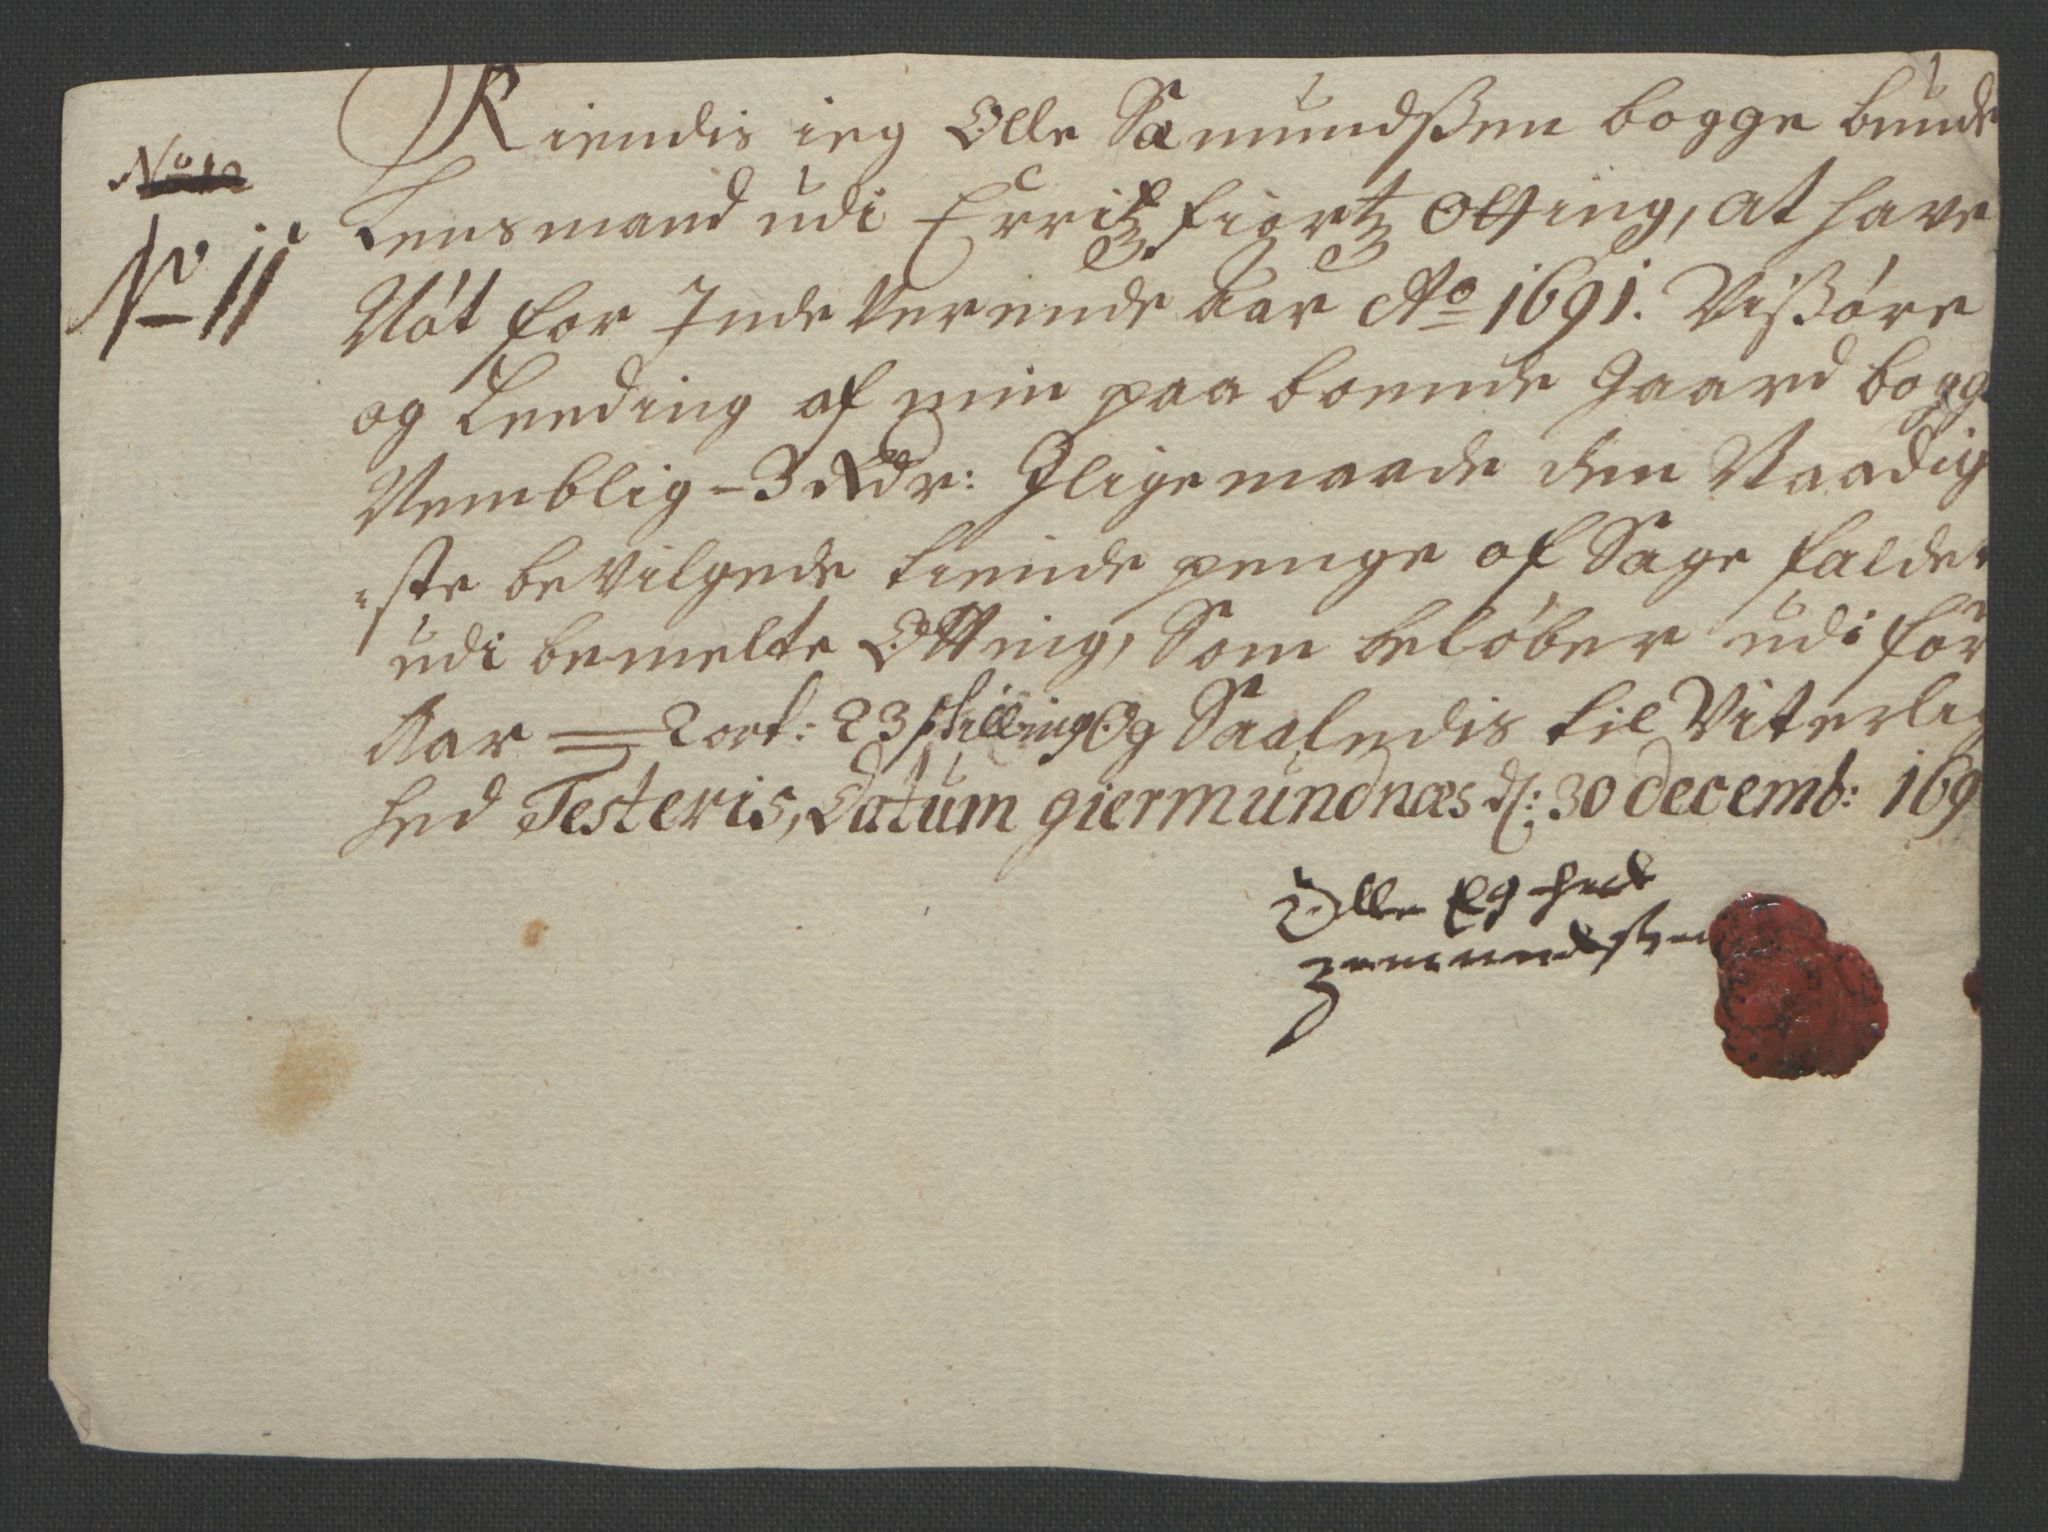 No 12
No 11
Kiendis ieg Olle Sæmundßen bogge bunde
Lensmand udi Erritz fiortz Otting, at have
Nót for Inde Verende Aar Ao 1691. Vißóre
og Leeding af min paa boende Gaard bogge
Nemblig - 3 Rdr: Iligemaade den Naadig
ste bevilgede tiende penge af Sage falder
udi bemelte Otting, Som belóber udi for
Aar = 2 ort: 23 skilling Og Saaledis til Viterlig
hed Testeris, Datum giermundnæs d: 30 decemb: 169
Olle Eg hend
zemundsen